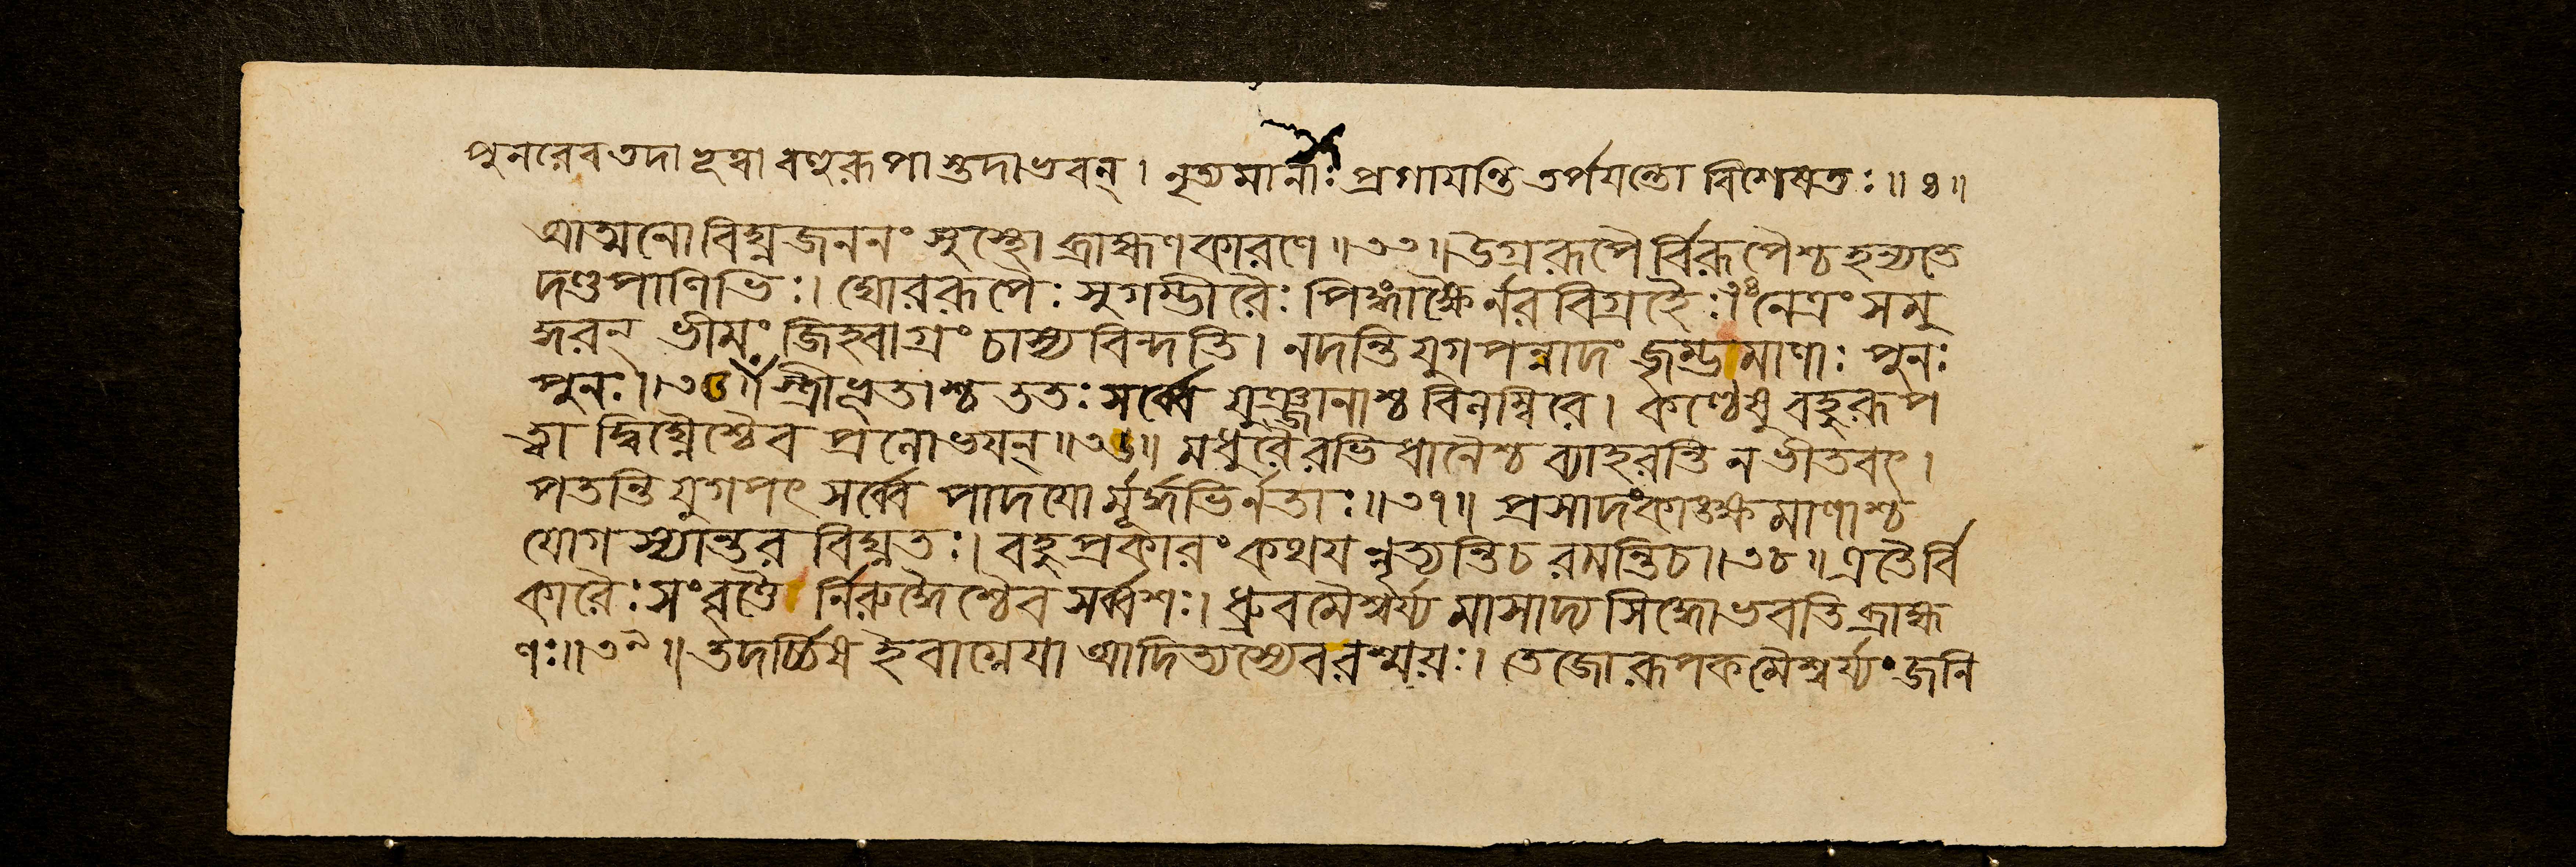 পুনরেব তদা হূত্বা বণুরূপাস্তুদাভবন্। নৃত্যমানাঃ প্রগাযন্তি তর্পযন্তো বিশেষতঃ॥ ৪॥
আত্মনো বিঘ্নজননং সুস্থো ব্রাহ্মণকারণে॥৩৩॥ উগ্ররূপৈর্বিরূপৈশ্চ হন্যতে
দণ্ডপাণিভিঃ। ঘোররূপৈঃ সুগম্ভীরৈঃ পিঙ্গাক্ষৈর্নরবিগ্রহৈঃ।৩৪ নেত্রং সমু
দ্ধরন্ ভীমং জিহ্বাগ্রং চাস্য বিন্দতি। নদন্তি যুগপন্নাদং জৃম্ভমাণাঃ পুনঃ
পুনঃ॥৩৫॥ স্ত্রীভূতাশ্চ ততঃ সর্ব্বে যুঞ্জানাশ্চ বিনম্বিরে। কণ্ঠেষু বহুরূপ
ত্বা দ্বিঘ্নৈশ্চৈব প্রনোভযন্॥৩৬॥ মধুরৈরভিধানৈশ্চ ব্যাহরন্তি ন ভীতবৎ।
পতন্তি যুগপৎ সর্ব্বে পাদযোর্মূর্দ্ধভির্নতাঃ॥৩৭॥ প্রসাদংকাঙ্ক্ষমাণাশ্চ
যোগস্যান্তর বিঘ্নতঃ। বহুপ্রকারং কথয নৃত্যন্তি চ রমন্তি চ॥৩৮॥ এতৈর্বি
কারৈঃ সংবৃতৈ র্নিরুদ্ধৈশ্চৈব সর্ব্বশঃ। ধ্রুবমৈশ্বর্য্য মাসাদ্য সিদ্ধো ভবতি ব্রাহ্ম
ণঃ॥৩৯॥ তদর্চ্চিষ হবাগ্নেযা আদিত্যস্যেব রশ্ময়ঃ। তেজোরূপকমৈশ্বর্য্যং জনি